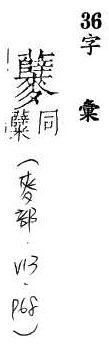 36字 彙
同
糵
(麥部．V13．P68)